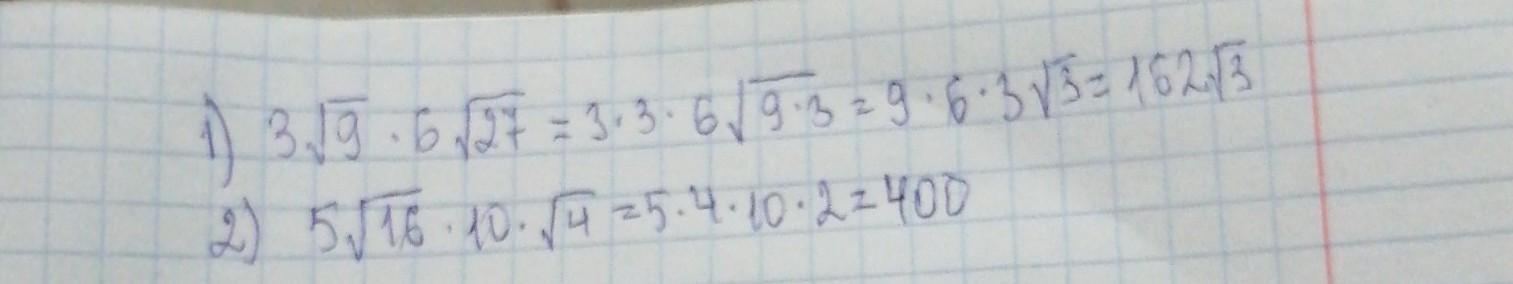 1) 3√9 · 6√27 = 3·3·6√9·3 = 9·6·3√3 = 162√3
2) 5√16 · 10·√4 = 5·4·10·2 = 400